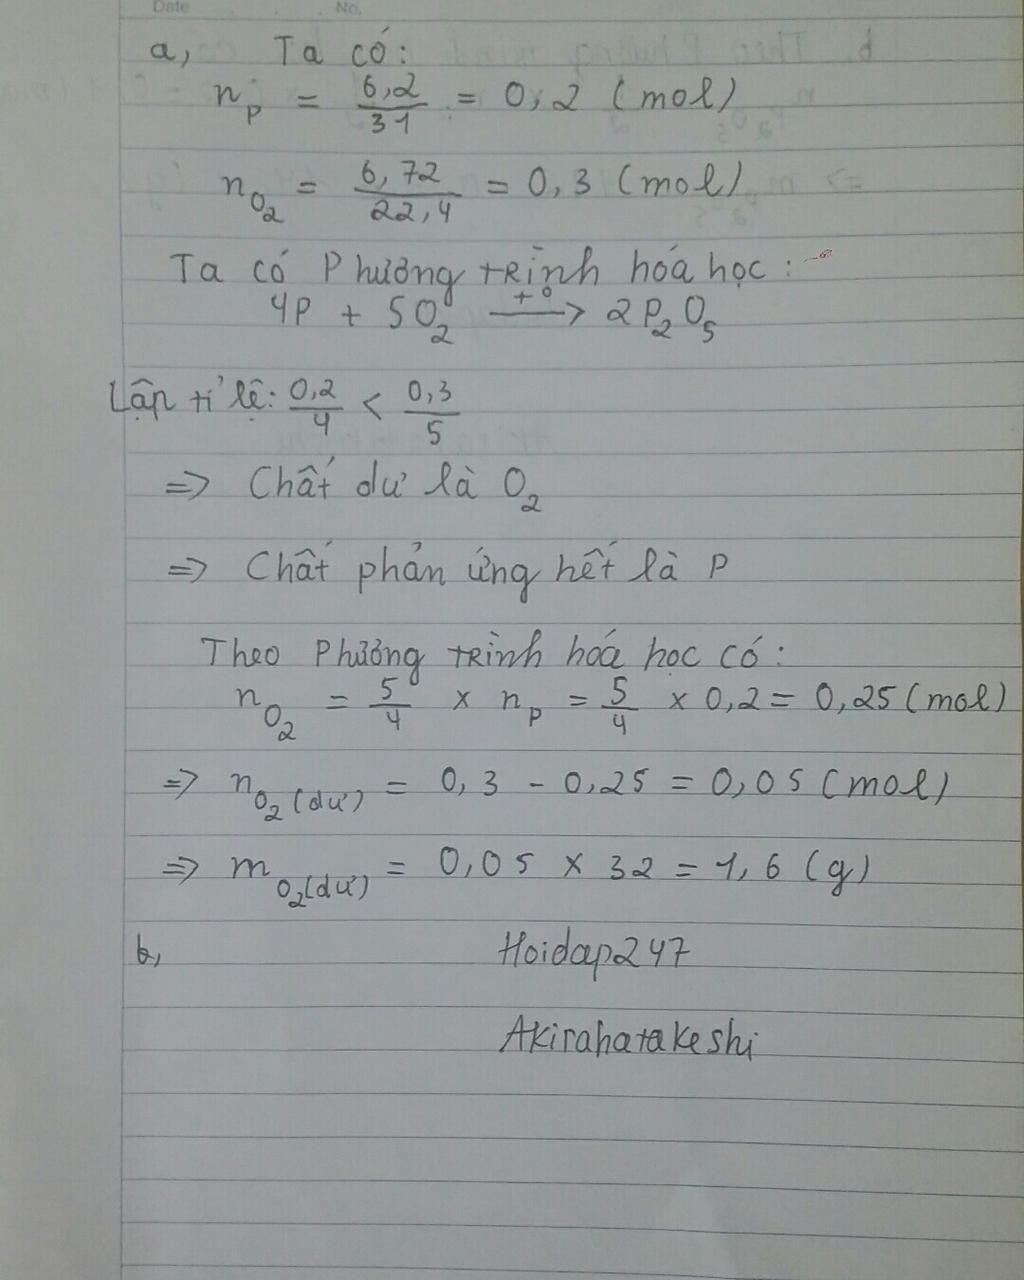 Date No.
a, Ta có:
n_P = 6,2/31 = 0,2 (mol)
n_O₂ = 6,72/22,4 = 0,3 (mol)
Ta có Phương trình hóa học:
4P + 5O₂ —t°→ 2P₂O₅
Lập tỉ lệ: 0,2/4 < 0,3/5
=> Chất dư là O₂
=> Chất phản ứng hết là P
Theo Phương trình hóa học có:
n_O₂ = 5/4 × n_P = 5/4 × 0,2 = 0,25 (mol)
=> n_O₂(dư) = 0,3 - 0,25 = 0,05 (mol)
=> m_O₂(dư) = 0,05 × 32 = 1,6 (g)
b, Hoidap247
Akirahatakeshi